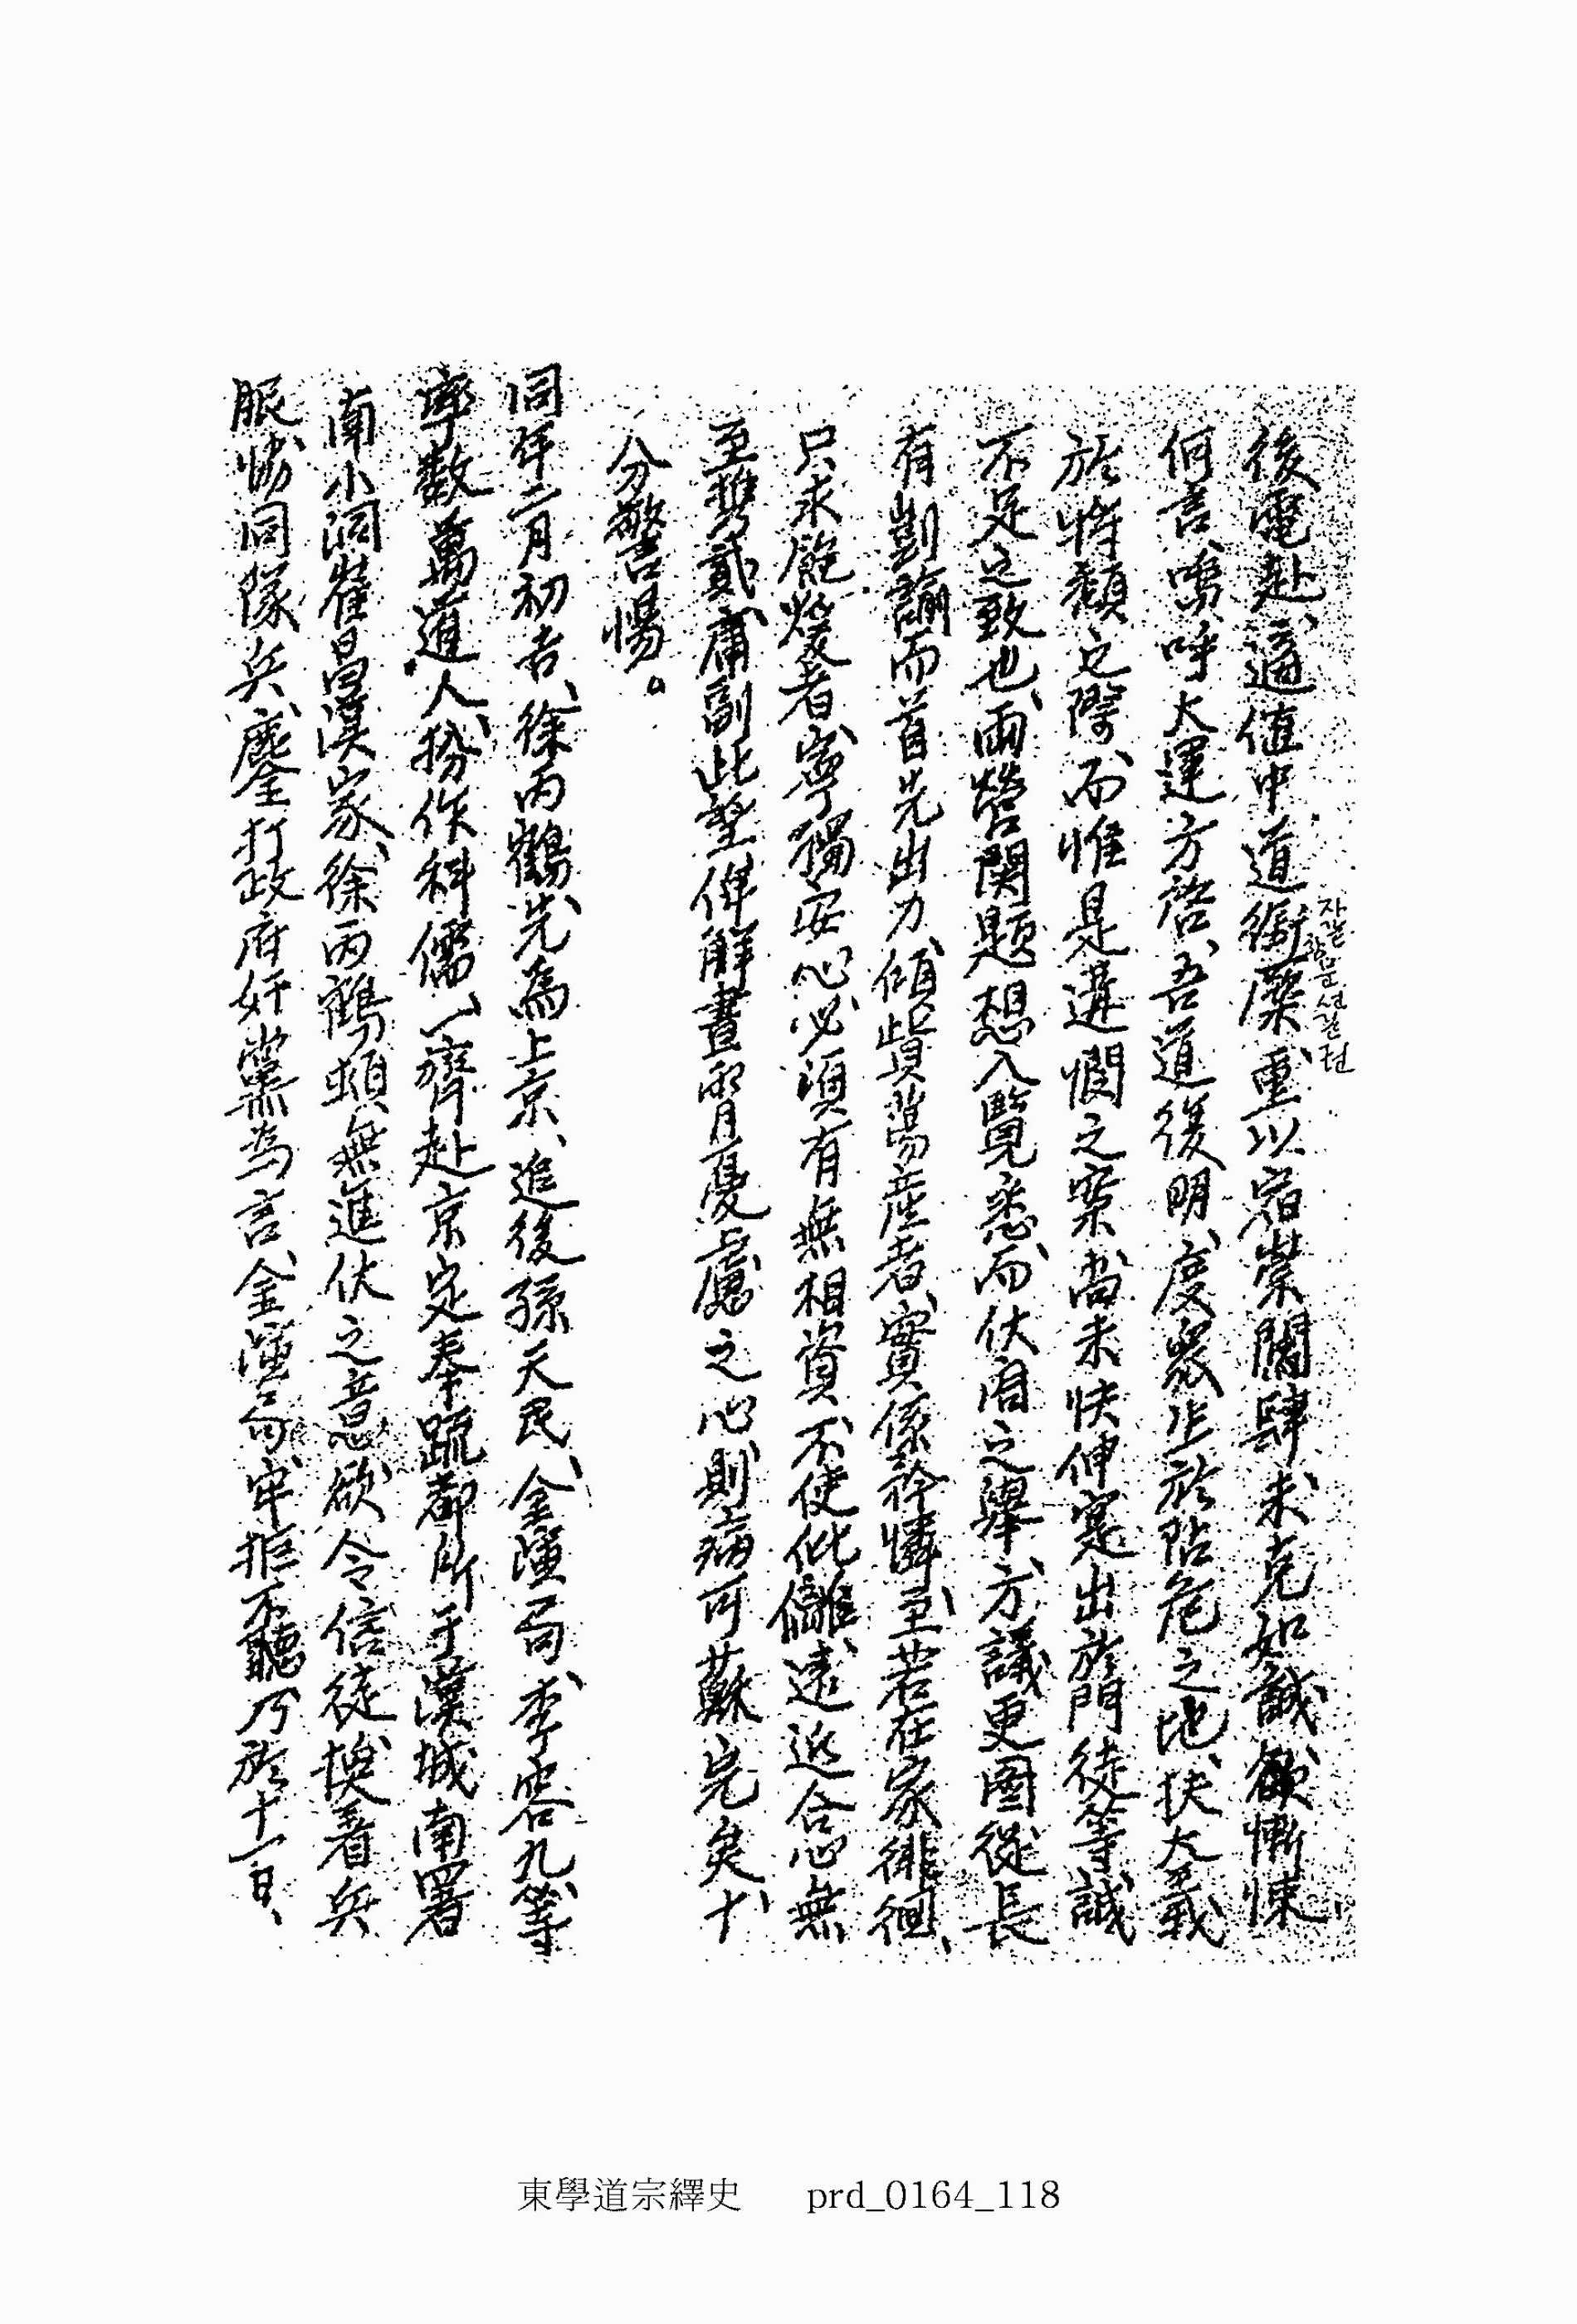 後電赴、適値中道銜橜、重以宿祟闖肆、未克如誠、欲慚悚
何言、嗚呼大運方啓、吾道復明、度衆生於阽危之地、扶大義
於將頹之際、而惟是遘憫之案、尚未快伸、寔出於門徒等誠
不足之致也、兩營関題、想入覽悉、而伏閤之擧、方議更圖、從長
有剴諭、而首先出力、傾貲蕩産者、實係矜憐、至若在家徘徊、
只求飽煖者、寧獨安心、必須有無相資、不使仳離、遠近合心、無
至携貳、庸副此望、俾解晝宵憂慮之心、則病可蘇完矣、十
分警惕。
同年二月初吉、徐丙鶴先爲上京、追後孫天民、金演局、李容九等
率數萬道人、扮作科儒、一齊赴京、定奉疏都所于漢城南署
南小洞崔昌漢家、徐丙鶴頓無進伏之意、欲令信徒換着兵
服、協同隊兵、鏖打政府奸黨爲言、金演局牢拒不聽、乃於十一日、